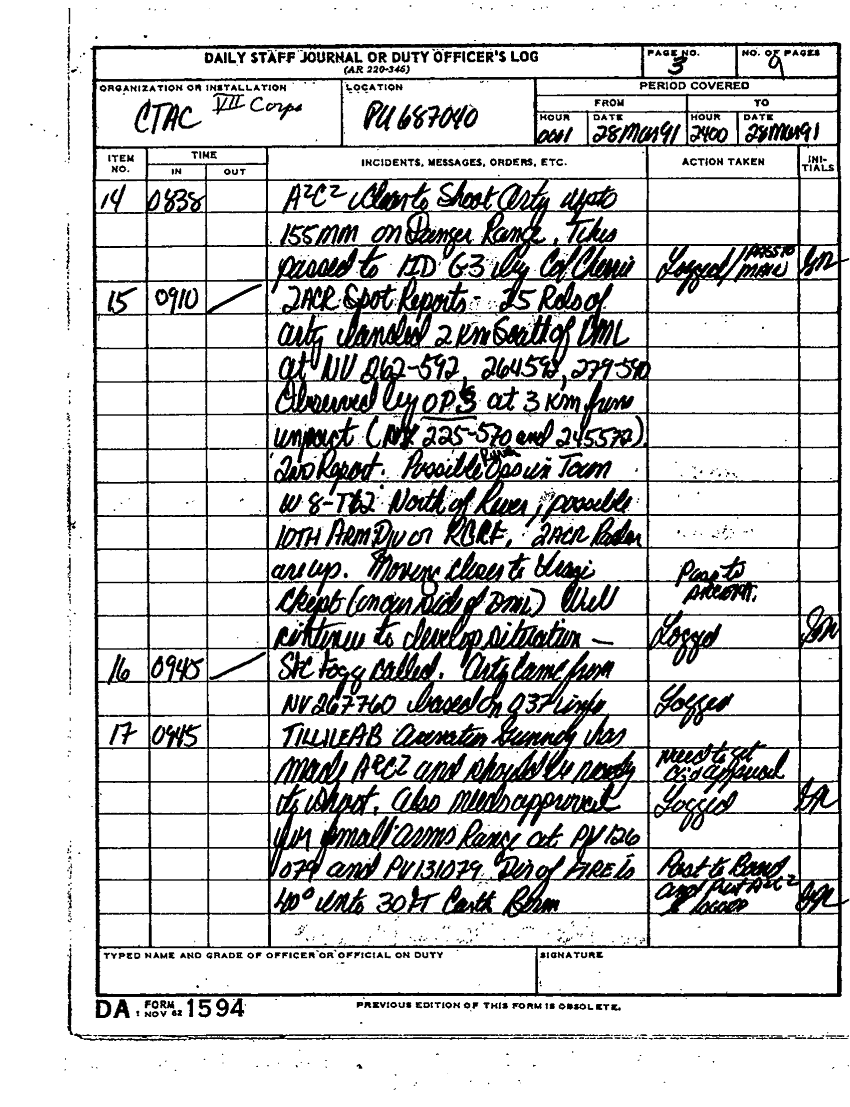 DAILY STAFF JOURNAL OR DUTY OFFICER'S LOG
(AR 220-346)
PAGE NO.
3
NO. OF PAGES
9
ORGANIZATION OR INSTALLATION
CTAC VII Corps
LOCATION
PU 687040
PERIOD COVERED
FROM
TO
HOUR
0001
DATE
28 Mar 91
HOUR
2400
DATE
28 Mar 91
ITEM NO.
TIME
IN
OUT
INCIDENTS, MESSAGES, ORDERS, ETC.
ACTION TAKEN
INI-TIALS
14 0838 A²C² Clear to Shoot Arty up to
155mm on Danger Range. This
passed to 1ID G3 by Col Logged/ Pass to Main
15 0910 2ACR Spot Reports - 25 Rds of
arty landed 2 Km South of DML
at NV 262-592, 264592, 279-590
Observed by OP'S at 3 Km from
impact (NV 225-570 and 245572).
2nd Report. Possible in Town
W 8-T62 North of River, possible
10TH ARM DIV or RGRF. 2ACR
are up. Moving closer to Iraqi
Ckept (on our side of DML) Will Pass to
continue to develop situation — Logged
16 0945 SFC Fogg called. Arty came from
NV 267760 based on Q37 info Logged
17 0945 Aviation Gunnery has
made A²C² and should be ready need to get approval
to shoot. Also needs approval Logged
for small arms Range at PV 126
079 and PV 131079. Dir of FIRE is Post to Board
40° into 30 FT Earth Berm and A²C² logged
TYPED NAME AND GRADE OF OFFICER OR OFFICIAL ON DUTY
SIGNATURE
DA FORM 1594
1 NOV 62
PREVIOUS EDITION OF THIS FORM IS OBSOLETE.